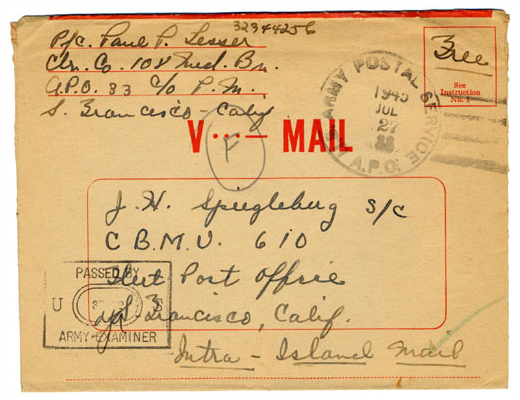 32344256
Pfc. Paul P. Lesser
Cln. Co. 108 Med. Bn.
A.P.O. 33 c/o P.M.
S. Francisco - Calif
Free
See
Instruction
No. 1
ARMY POSTAL SERVICE
1945
JUL
27
A.P.O.
V···— MAIL
F
J. H. Spiegleburg S/c
C B M U 610
Fleet Post Office
San Francisco, Calif.
Intra - Island Mail
PASSED BY
U S
ARMY EXAMINER